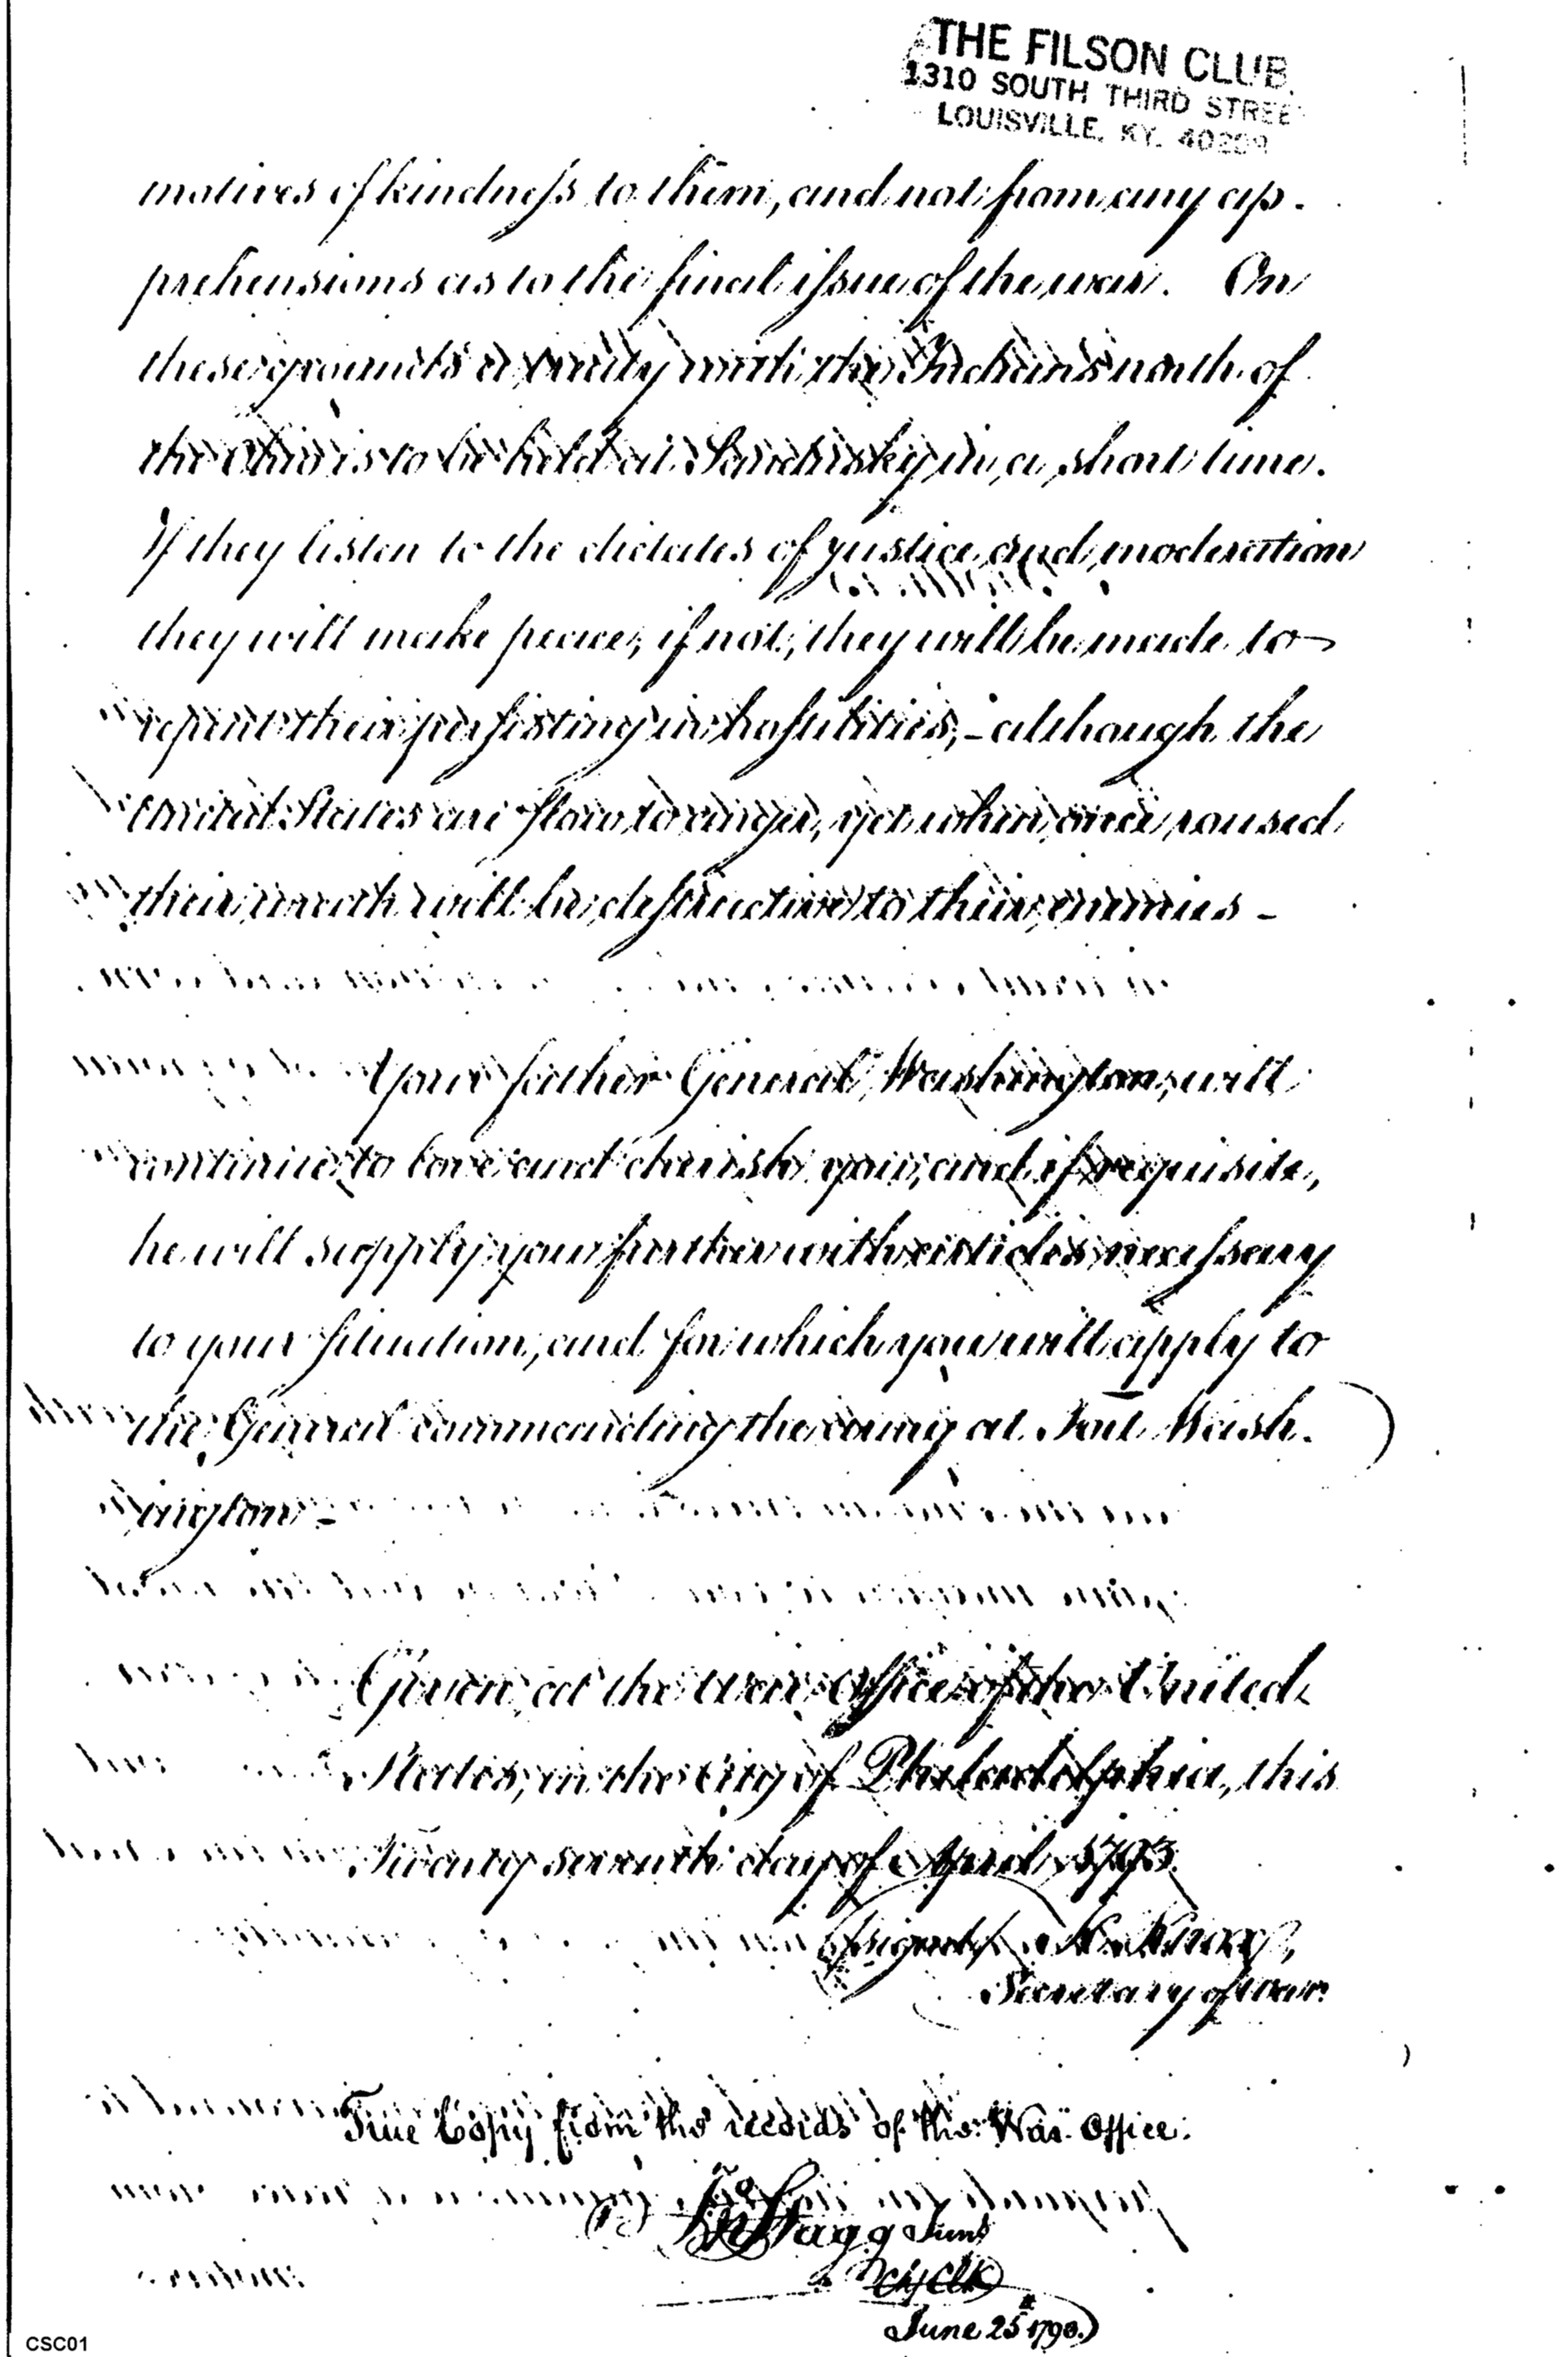 THE FILSON CLUB
1310 SOUTH THIRD STREE
LOUISVILLE, KY. 40209
motives of kindness to them, and not from any ap-
prehensions as to the final issue of the war. On
these grounds a treaty with the Indians north of
the Ohio is to be held at Sandusky in a short time.
If they listen to the dictates of justice and moderation
they will make peace, if not, they will be made to
repent their persisting in hostilities, - although the
United States are slow to anger, yet when once roused
their wrath will be destructive to their enemies -
Your father General Washington, will
continue to love and cherish you, and if requisite,
he will supply you further with articles necessary
to your situation, and for which you will apply to
the General commanding the army at Fort Wash-
ington -
Given at the war Office of the United
States, in the City of Philadelphia, this
Twenty seventh day of April, 1793
(signed) H. Knox,
Secretary of war.
True Copy from the records of the War Office.
Jno Stagg Junr
Ch Clk
June 25 1798.)
CSC01